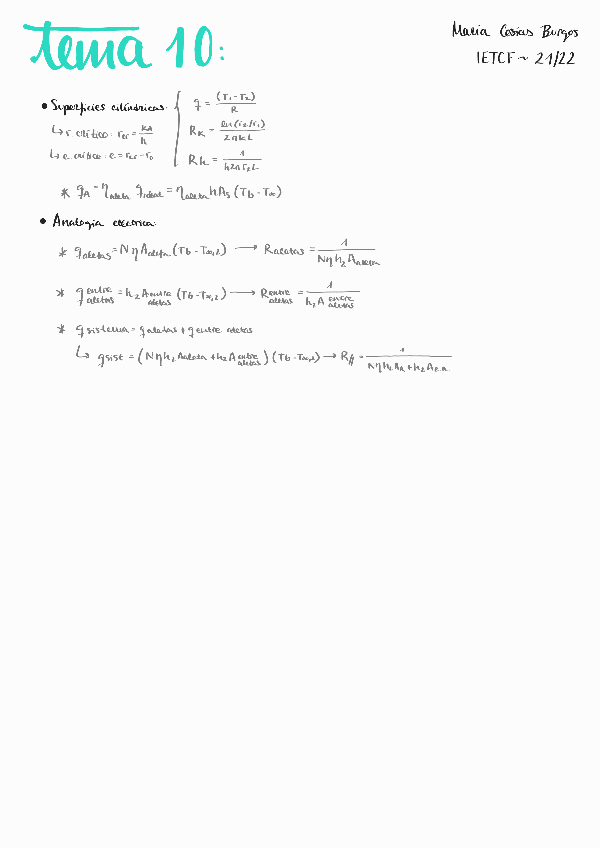 tema 10:
Maria Casias Burgos
IETCF ~ 21/22
• Superficies cilíndricas: { q = (T1 - T2) / R
↳ r crítico: rcr = kA / h
Rk = ln(r2/r1) / 2πkL
↳ e. crítico: e = rcr - r0
Rh = 1 / h2πr2L
* qA = ηaleta qideal = ηaleta hAs (Tb - T∞)
• Analogía eléctrica:
* qaletas = NηAaleta (Tb - T∞,2) → Raletas = 1 / Nηh2Aaleta
* q entre aletas = h2 A entre aletas (Tb - T∞,2) → R entre aletas = 1 / h2 A entre aletas
* q sistema = q aletas + q entre aletas
↳ qsist = (Nηh2 Aaleta + h2 A entre aletas) (Tb - T∞,2) → RA = 1 / Nηh2AA + h2Ae.a.